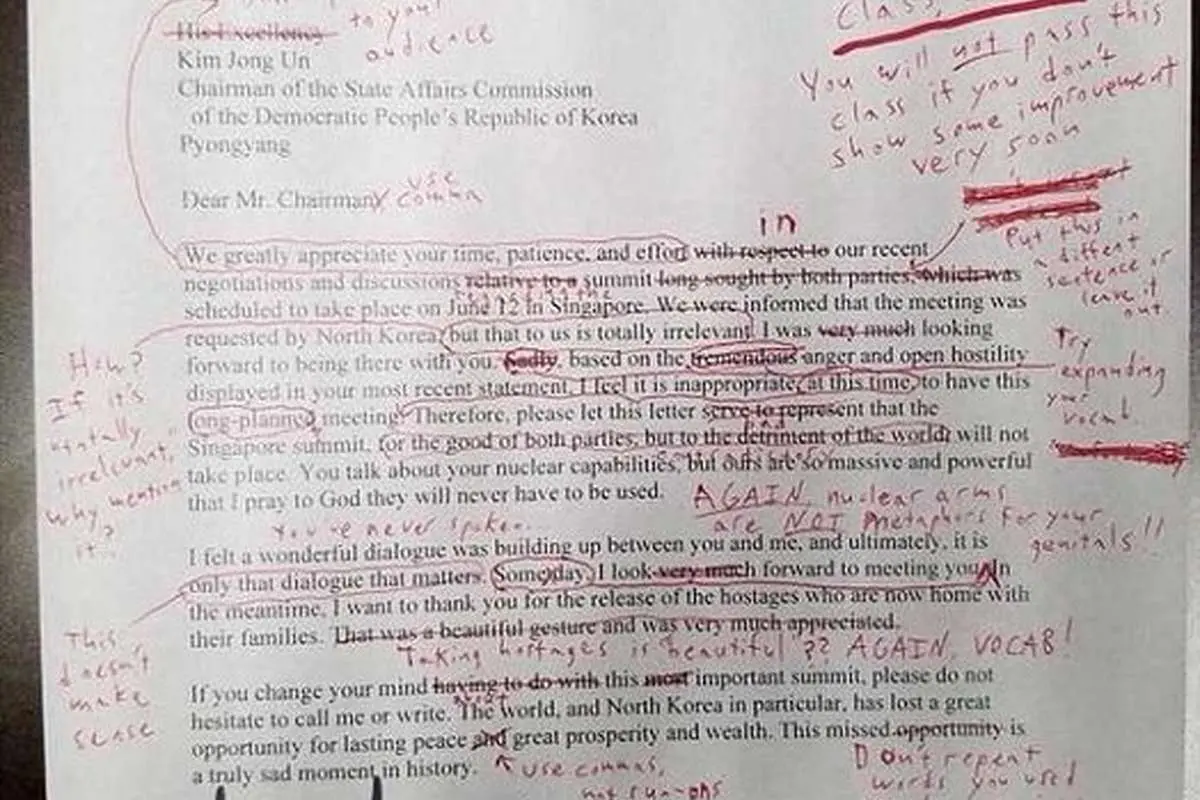 to your
audience
class,
His Excellency
Kim Jong Un
Chairman of the State Affairs Commission
of the Democratic People's Republic of Korea
Pyongyang
You will not pass this
class if you don't
show some improvement
very soon
Dear Mr. Chairman
use
comma
in
We greatly appreciate your time, patience, and effort with respect to our recent
negotiations and discussions relative to a summit long sought by both parties, which was
scheduled to take place on June 12 in Singapore. We were informed that the meeting was
requested by North Korea, but that to us is totally irrelevant. I was very much looking
forward to being there with you. Sadly, based on the tremendous anger and open hostility
displayed in your most recent statement, I feel it is inappropriate, at this time, to have this
long-planned meeting. Therefore, please let this letter serve to represent that the
Singapore summit, for the good of both parties, but to the detriment of the world, will not
take place. You talk about your nuclear capabilities, but ours are so massive and powerful
that I pray to God they will never have to be used.
Put this in
a different
sentence or
leave it
out.
Try
expanding
your
vocab.
How?
If it's
totally
irrelevant,
why mention
it
AGAIN, nuclear arms
are NOT metaphors for your
genitals!!
You've never spoken...
I felt a wonderful dialogue was building up between you and me, and ultimately, it is
only that dialogue that matters. Some day, I look very much forward to meeting you. In
the meantime, I want to thank you for the release of the hostages who are now home with
their families. That was a beautiful gesture and was very much appreciated.
Taking hostages is beautiful?? AGAIN, VOCAB!
This
doesn't
make
sense
If you change your mind having to do with this most important summit, please do not
hesitate to call me or write. The world, and North Korea in particular, has lost a great
opportunity for lasting peace and great prosperity and wealth. This missed opportunity is
a truly sad moment in history.
use commas,
not run-ons
Don't repeat
words you used